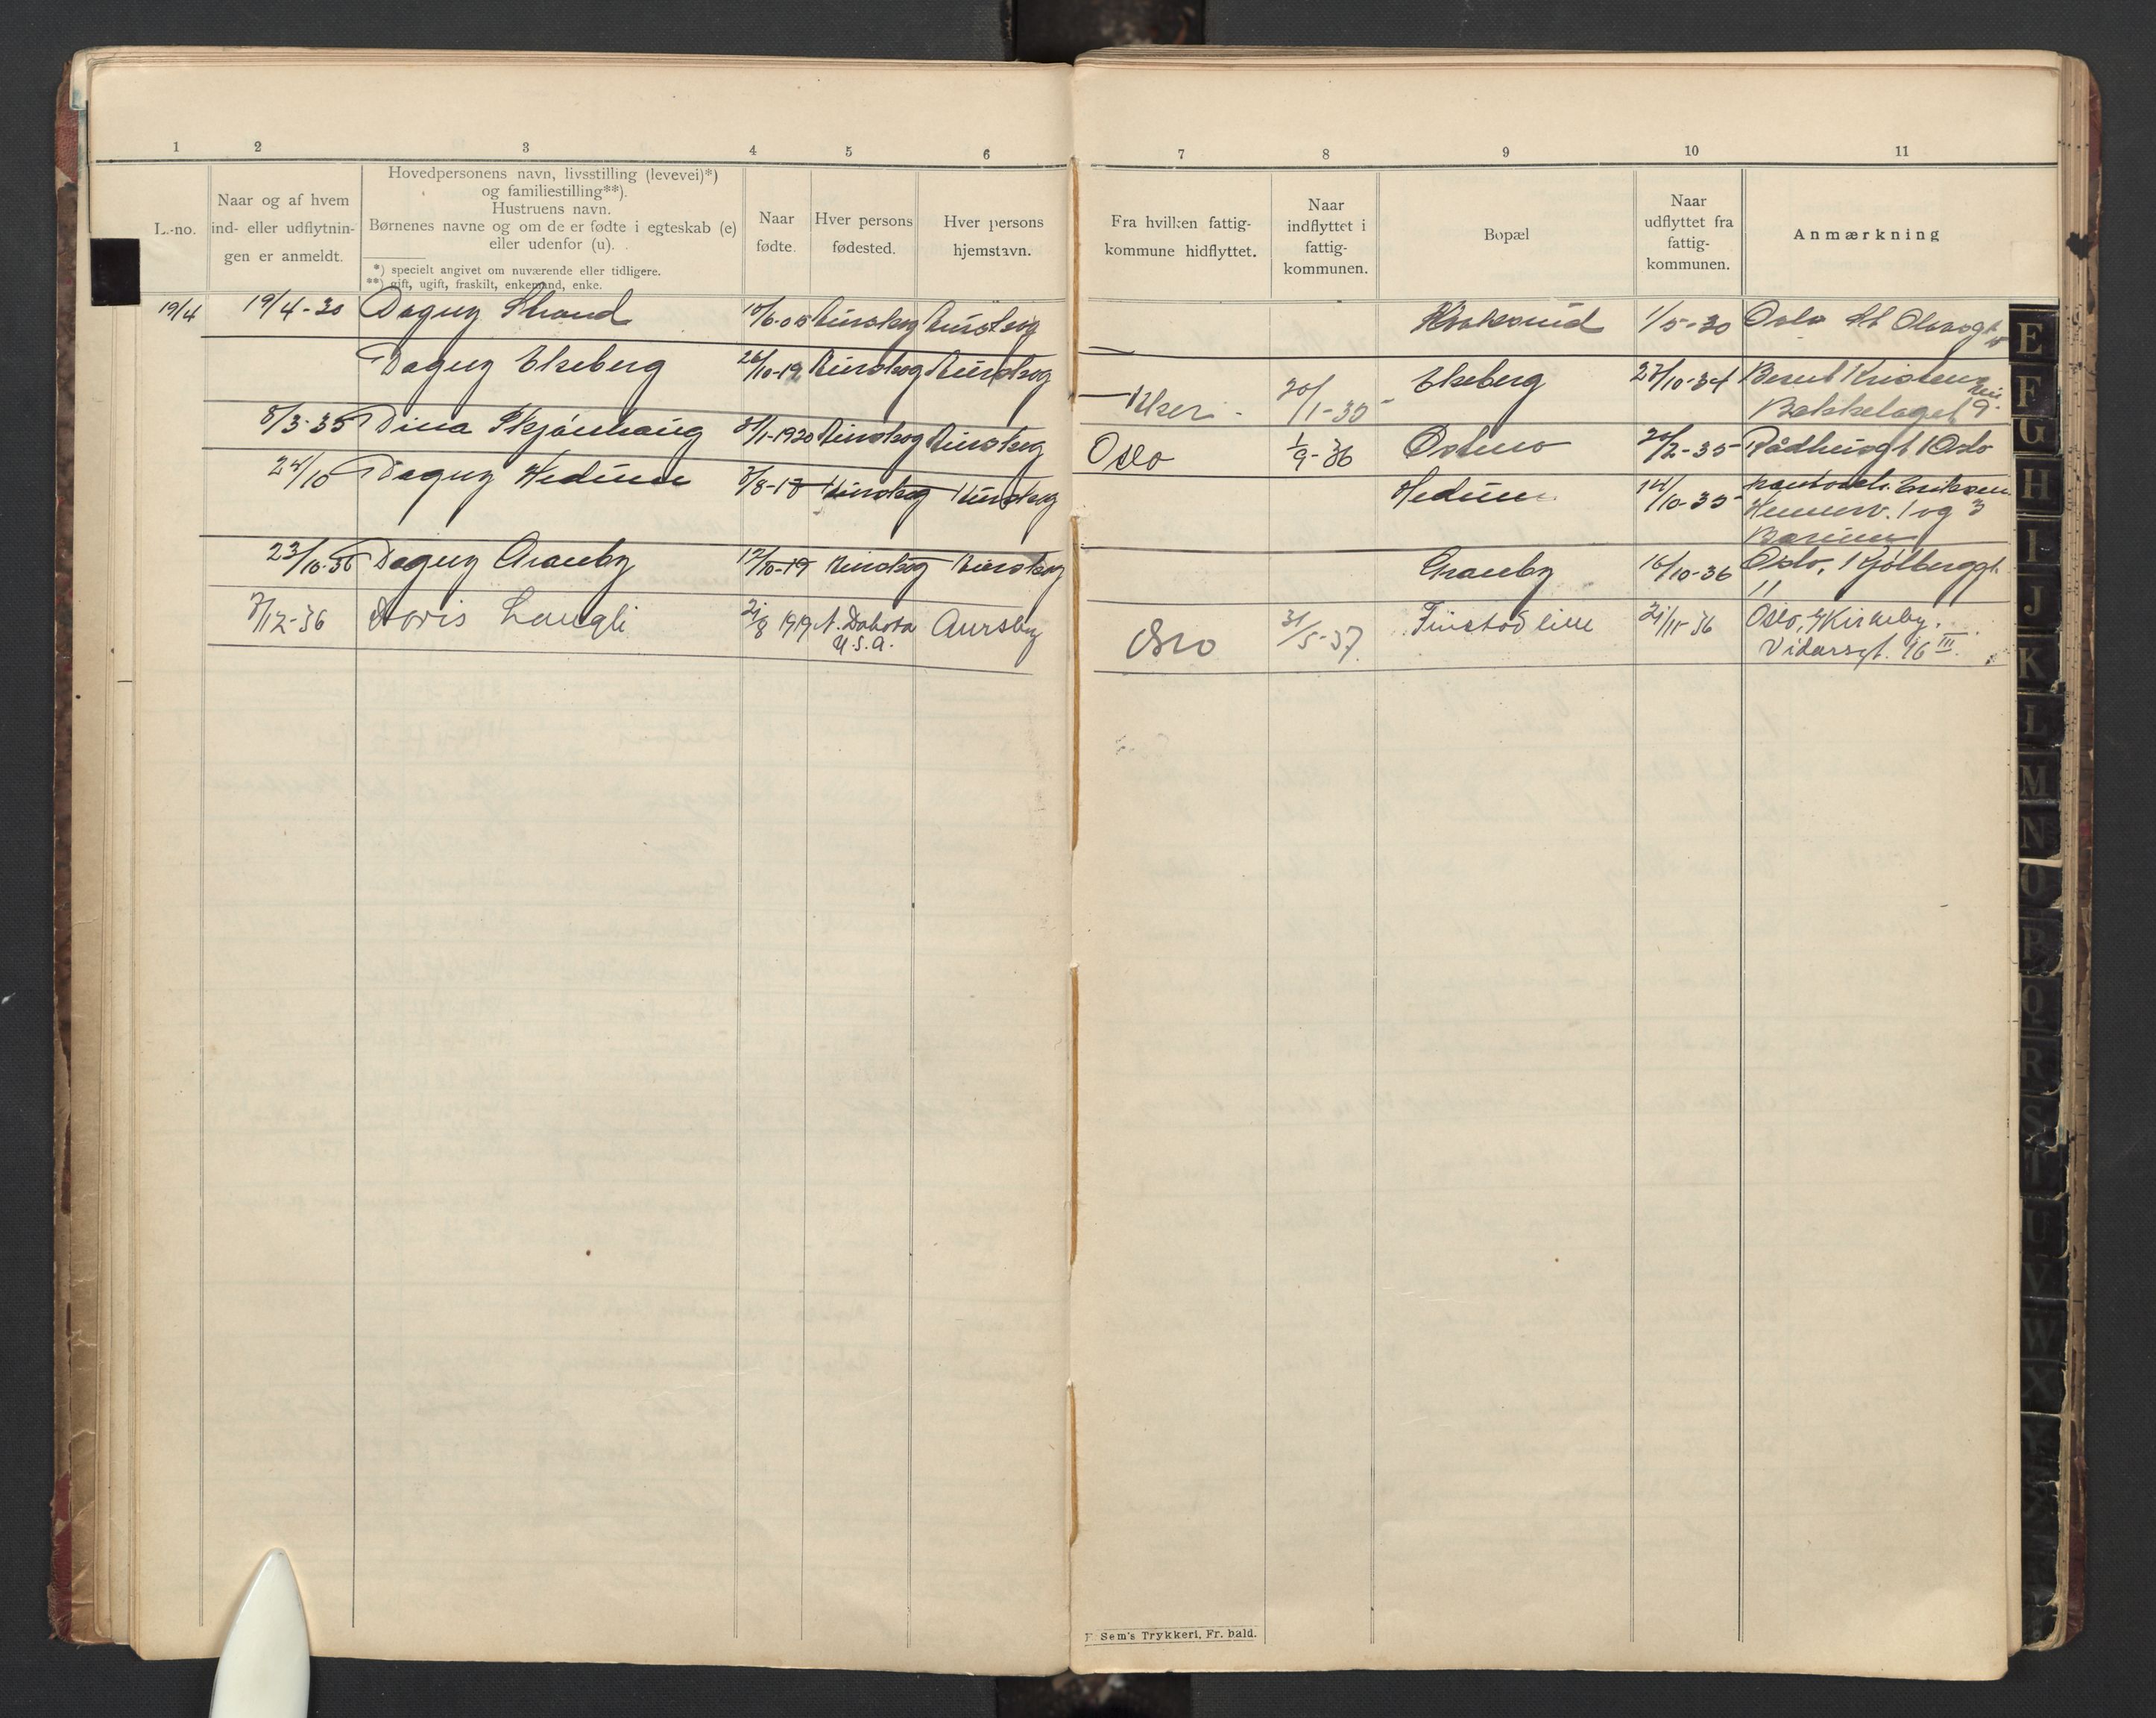 1 2 3 4 5 6 7 8 9 10 11
L.-no.
Naar og af hvem
ind- eller udflytnin-
gen er anmeldt.
Hovedpersonens navn, livsstilling (levevei)*)
og familiestilling**).
Hustruens navn.
Børnenes navne og om de er fødte i egteskab (e)
eller udenfor (u).
*) specielt angivet om nuværende eller tidligere.
**) gift, ugift, fraskilt, enkemand, enke.
Naar
fødte.
Hver persons
fødested.
Hver persons
hjemstavn.
Fra hvilken fattig-
kommune hidflyttet.
Naar
indflyttet i
fattig-
kommunen.
Bopæl
Naar
udflyttet fra
fattig-
kommunen.
Anmærkning
19/4 19/4-30 Dagny Strand 10/6-05 Aurskog Aurskog 1/5-30 Oslo St Olavsgt
Dagny Elseberg 26/10-19 Aurskog Aurskog 20/1-35 Elseberg 27/10-34 Bernt
Bekkelaget 9.
8/3-35 Dina Skjønhaug 31/1-1920 Aurskog Aurskog Oslo 1/9-36 Østmo 20/2-35 Rådhusgt 1 Oslo
24/10 Dagny Hedum 3/8-18 Aurskog Aurskog Hedum 14/10-35 Eriksen
1 og 3
Bærum
23/10-36 Dagny Granby 12/10-19 Aurskog Aurskog Granby 16/10-36 Oslo, Kjølberggt.
11
3/12-36 Doris Laugli 21/8 1919 N. Dakota Aursby Oslo 31/5-37 Finstad lille 21/11-36 Oslo, Kirkeby.
U.S.A. Vidarsgt. 16 III.
F Sem's Trykkeri, Fr. hald.
E
F
G
H
I
J
K
L
M
N
O
P
Q
R
S
T
U
V
W
X